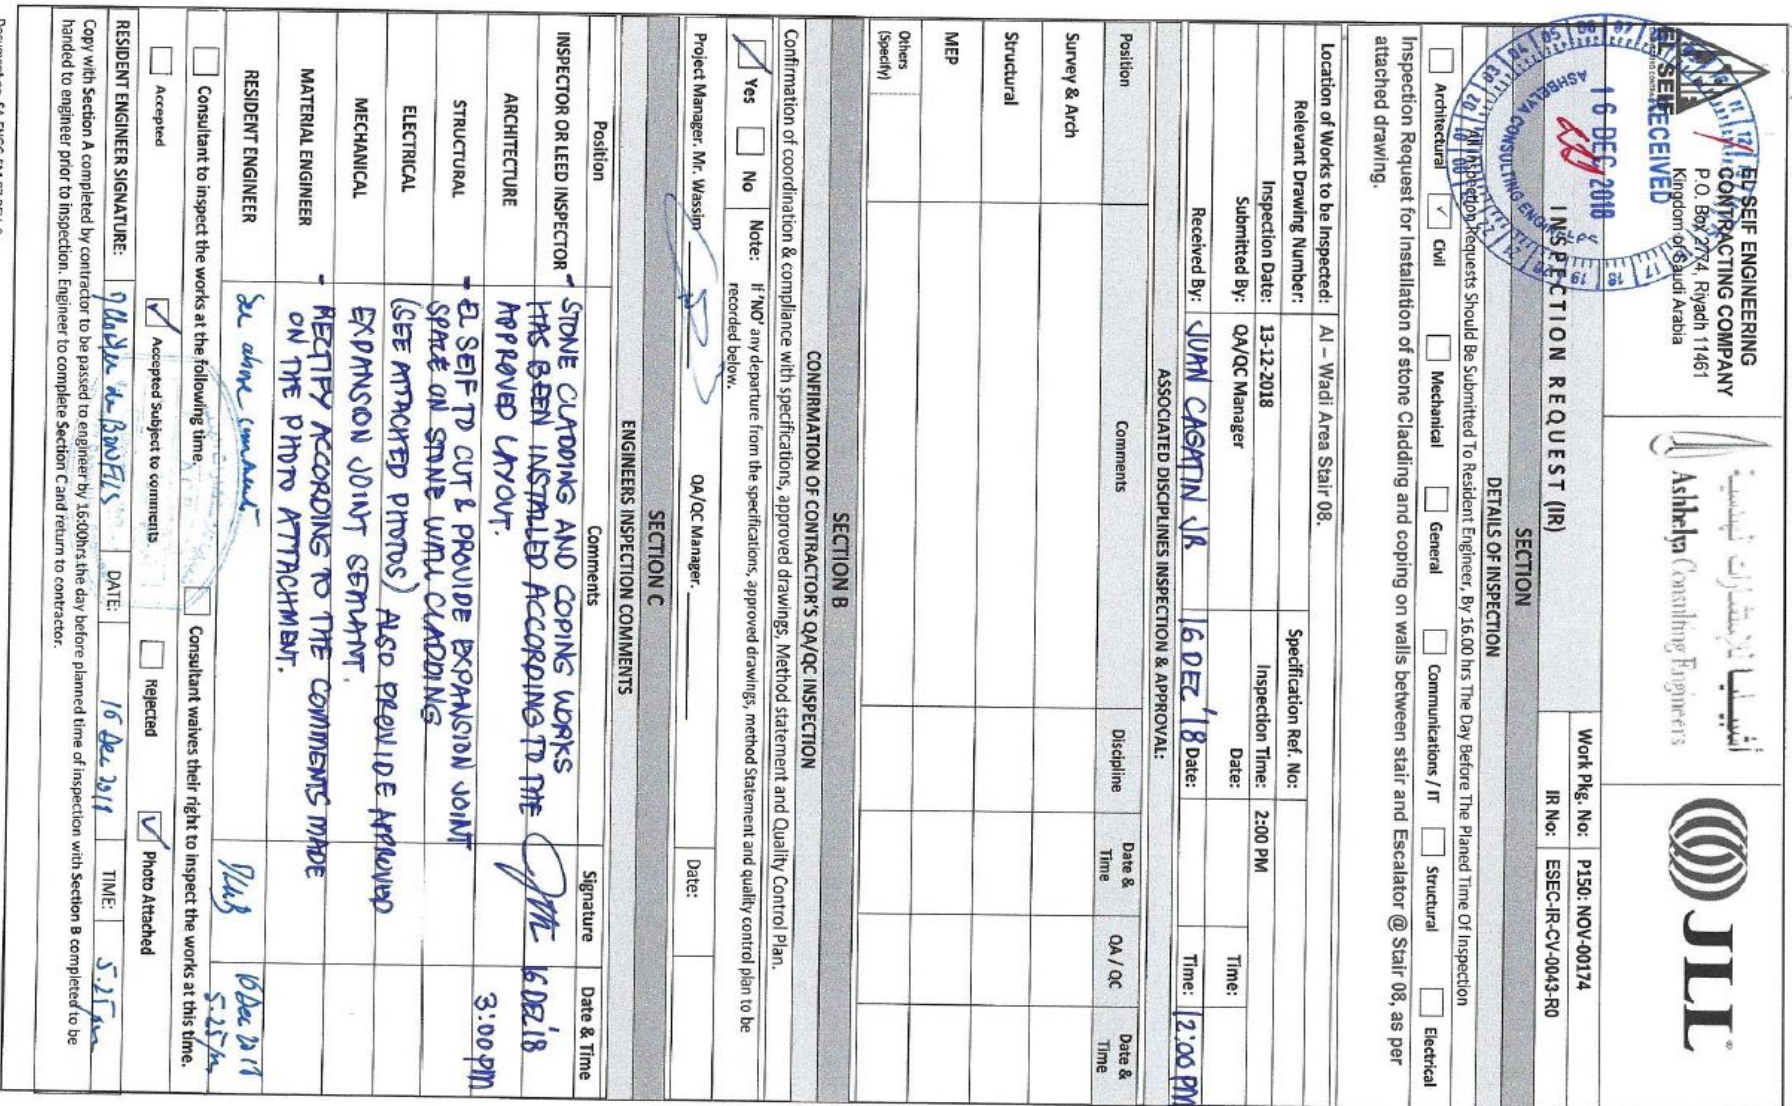 EL SEIF
EL SEIF ENGINEERING
CONTRACTING COMPANY
P.O. Box 2774, Riyadh 11461
Kingdom of Saudi Arabia
RECEIVED
16 DEC 2018
ASHBELYA CONSULTING ENGINEERS
Ashbelya Consulting Engineers
JLL
INSPECTION REQUEST (IR)
Work Pkg. No: P150: NOV-00174
IR No: ESEC-IR-CV-0043-R0
SECTION
DETAILS OF INSPECTION
All Inspection Requests Should Be Submitted To Resident Engineer, By 16.00 hrs The Day Before The Planed Time Of Inspection
Architectural ✓ Civil Mechanical General Communications / IT Structural Electrical
Inspection Request for Installation of stone Cladding and coping on walls between stair and Escalator @ Stair 08, as per
attached drawing.
Location of Works to be Inspected: Al – Wadi Area Stair 08.
Relevant Drawing Number: Specification Ref. No:
Inspection Date: 13-12-2018 Inspection Time: 2:00 PM
Submitted By: QA/QC Manager Date: Time:
Received By: JUAN CAGATIN JR 16 DEC '18 Date: Time: 12:00 PM
ASSOCIATED DISCIPLINES INSPECTION & APPROVAL:
Position Comments Discipline Date & Time QA / QC Date & Time
Survey & Arch
Structural
MEP
Others
(Specify)
SECTION B
CONFIRMATION OF CONTRACTOR'S QA/QC INSPECTION
Confirmation of coordination & compliance with specifications, approved drawings, Method statement and Quality Control Plan.
✓ Yes No Note: If 'NO' any departure from the specifications, approved drawings, method Statement and quality control plan to be
recorded below.
Project Manager. Mr. Wassim QA/QC Manager. Date:
SECTION C
ENGINEERS INSPECTION COMMENTS
Position Comments Signature Date & Time
INSPECTOR OR LEED INSPECTOR - STONE CLADDING AND COPING WORKS
HAS BEEN INSTALLED ACCORDING TO THE 16 DEC '18
ARCHITECTURE APPROVED LAYOUT. 3:00 PM
STRUCTURAL - EL SEIF TO CUT & PROVIDE EXPANSION JOINT
SPACE ON STONE WALL CLADDING
ELECTRICAL (SEE ATTACHED PHOTOS) ALSO PROVIDE APPROVED
MECHANICAL EXPANSION JOINT SEALANT.
MATERIAL ENGINEER - RECTIFY ACCORDING TO THE COMMENTS MADE
ON THE PHOTO ATTACHMENT.
RESIDENT ENGINEER See above comment 16 Dec 2018
5.25pm
Consultant to inspect the works at the following time. Consultant waives their right to inspect the works at this time.
Accepted ✓ Accepted Subject to comments Rejected ✓ Photo Attached
RESIDENT ENGINEER SIGNATURE: DATE: 16 Dec 2018 TIME: 5.25pm
Copy with Section A completed by contractor to be passed to engineer by 16:00hrs the day before planned time of inspection with Section B completed to be
handed to engineer prior to inspection. Engineer to complete Section C and return to contractor.